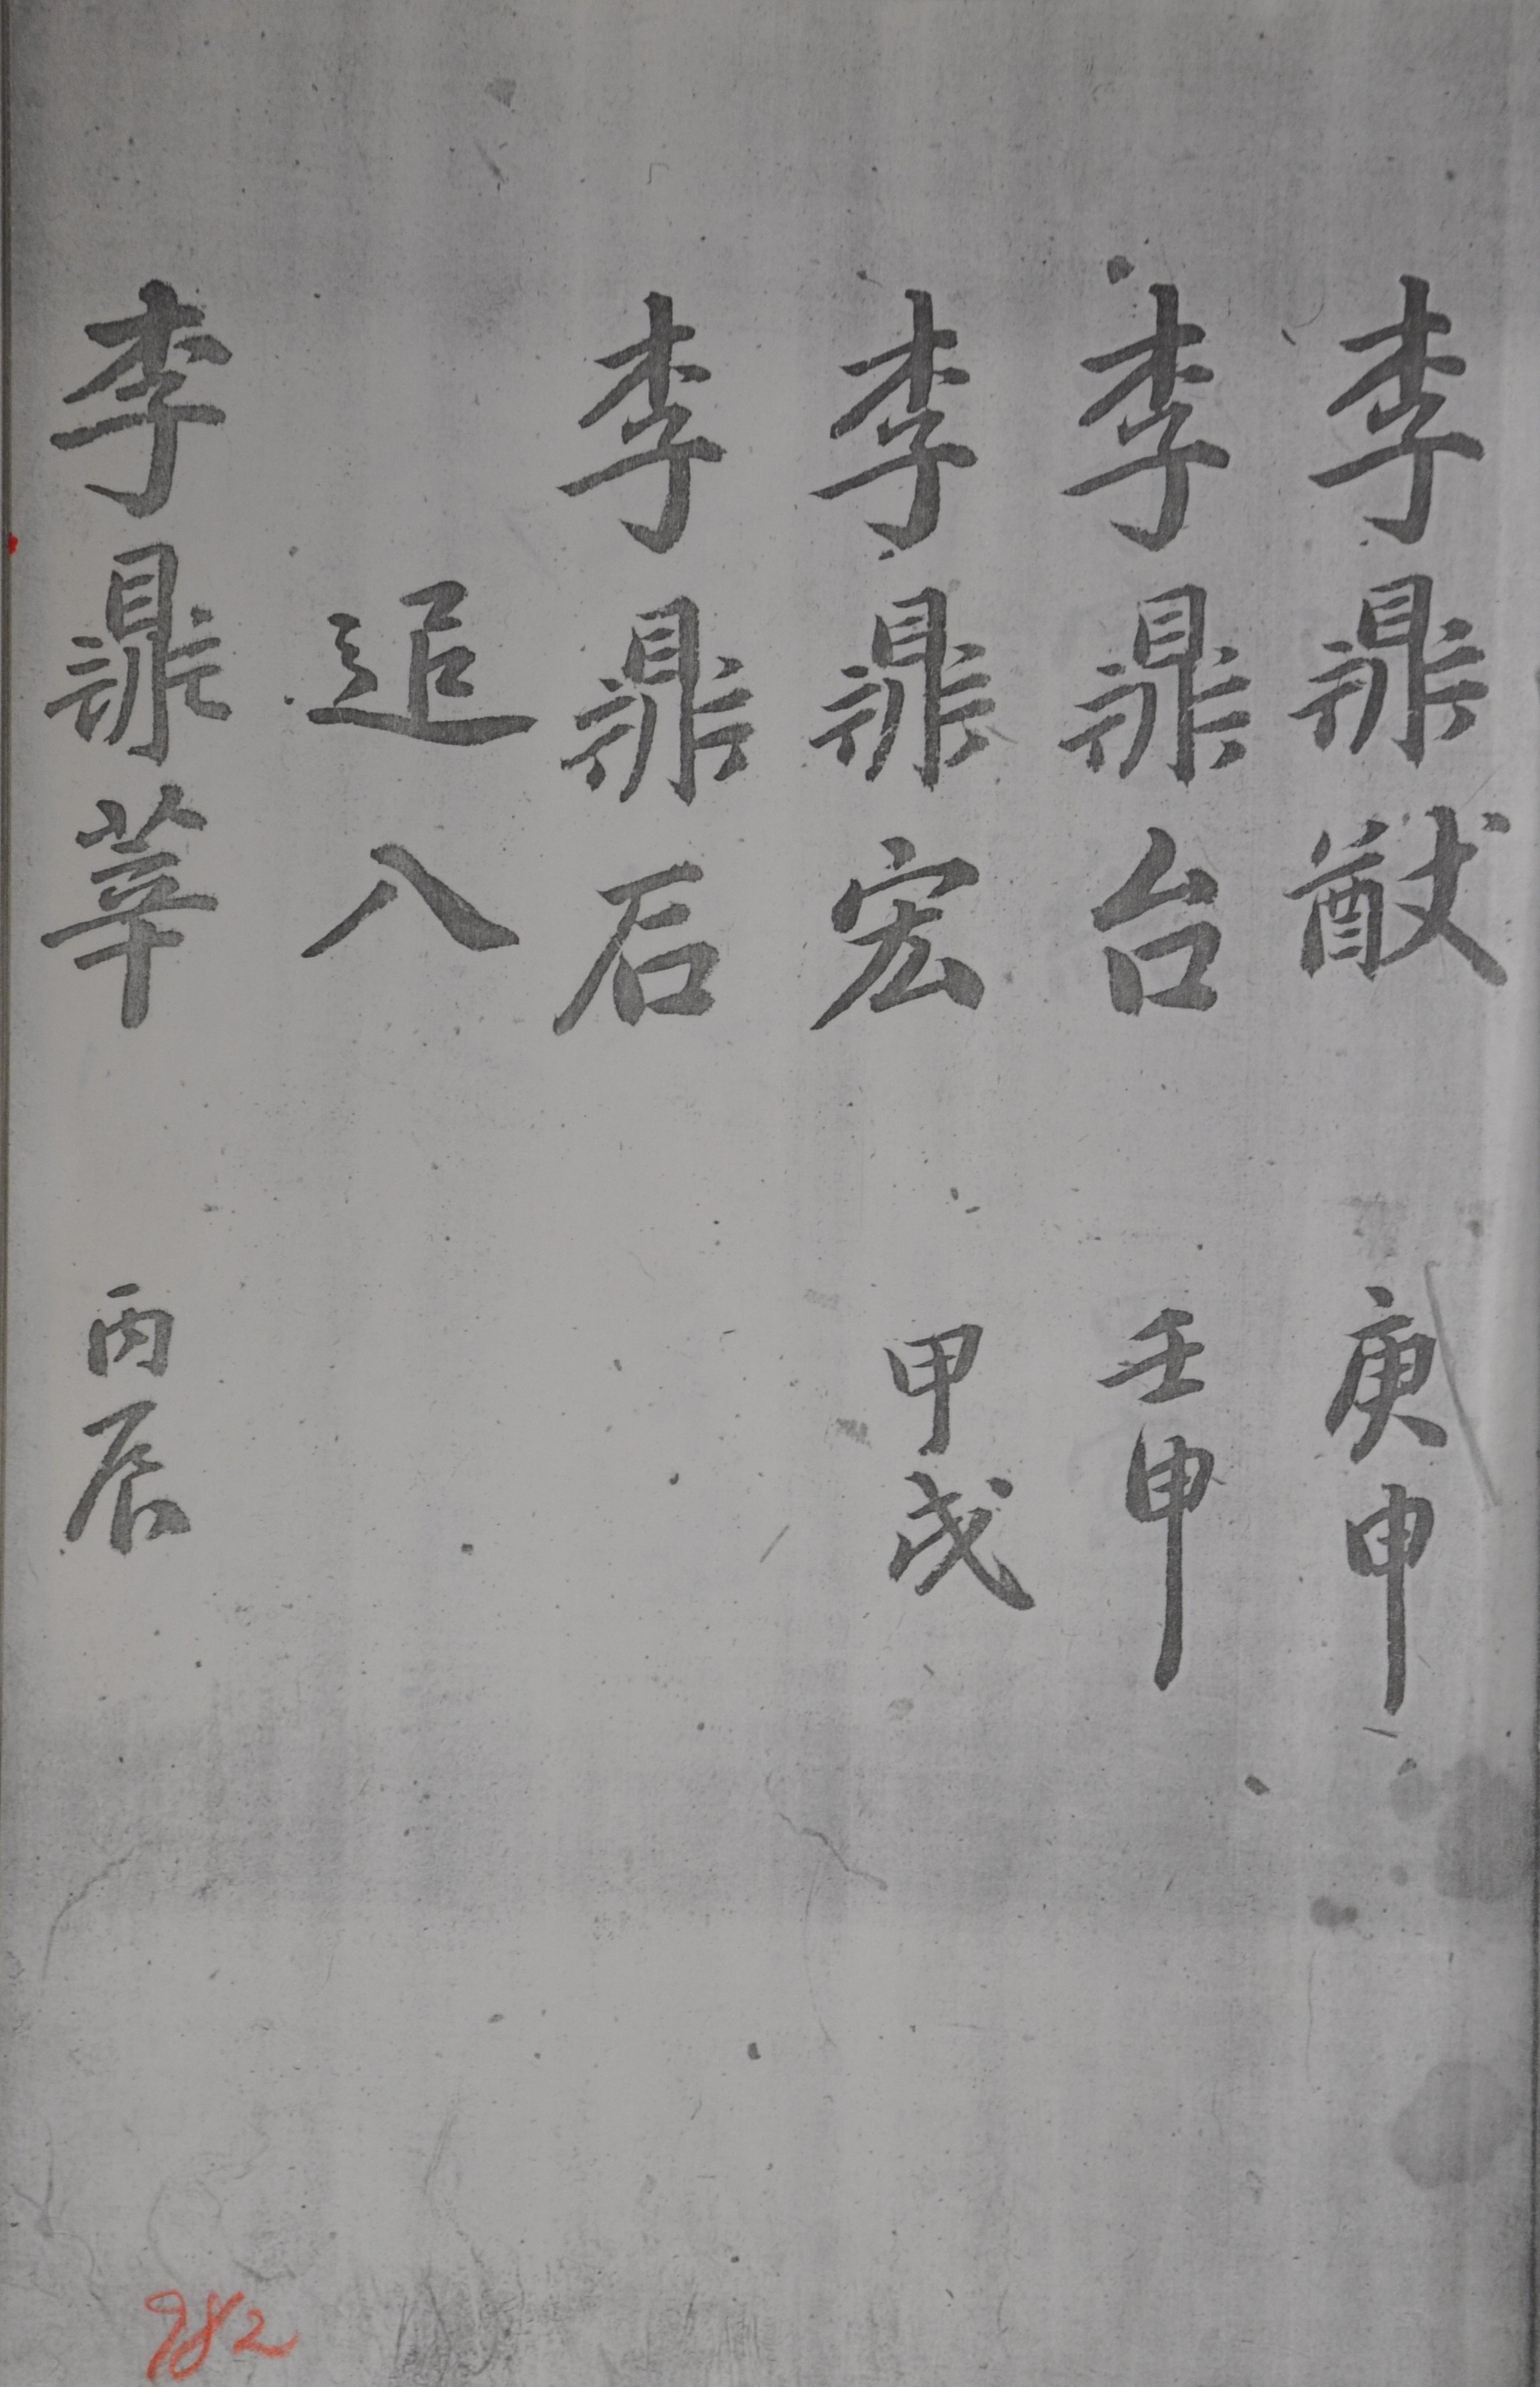 李鼎猷 庚申
李鼎台 壬申
李鼎宏 甲戌
李鼎石
追八
李鼎莘 丙辰
982